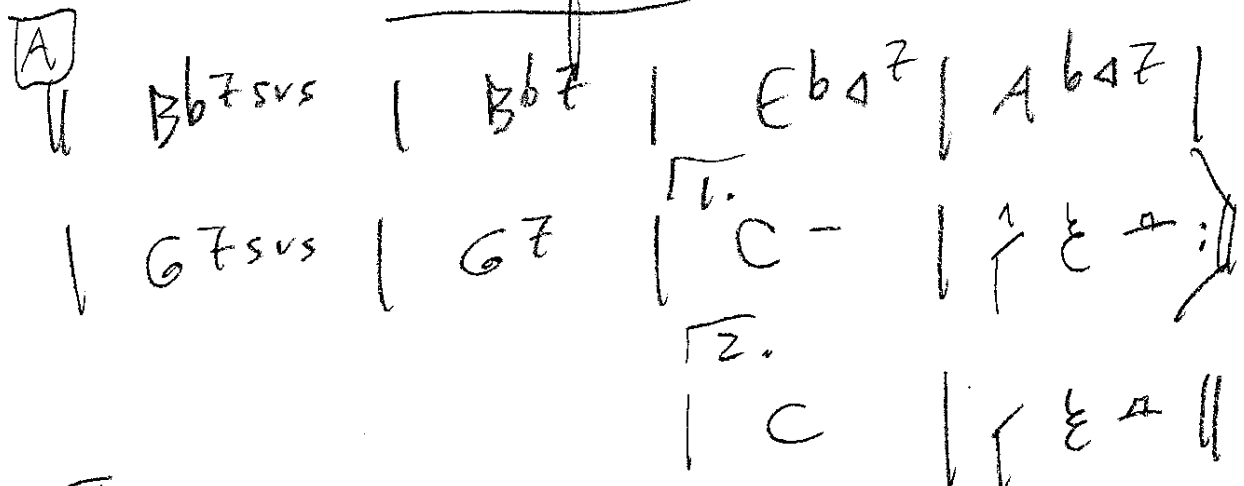 A
‖ Bb7sus | Bb7 | Eb△7 | Ab△7 |
| G7sus | G7 | 1. C- | :‖
2.
| C | ‖